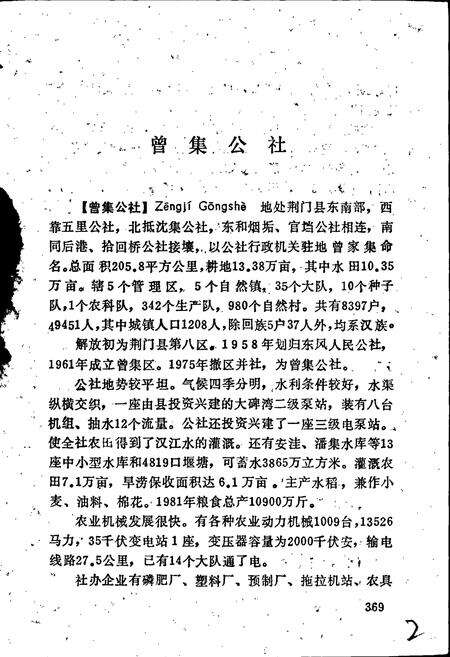 曾集公社
【曾集公社】Zēngjí Gōngshè 地处荆门县东南部，西
靠五里公社，北抵沈集公社，东和烟垢、官垱公社相连，南
同后港、拾回桥公社接壤，以公社行政机关驻地曾家集命
名。总面积205.8平方公里，耕地13.38万亩，其中水田10.35
万亩。辖5个管理区，5个自然镇，35个大队，10个种子
队，1个农科队，342个生产队，980个自然村。共有8397户，
49451人，其中城镇人口1208人，除回族5户37人外，均系汉族。
解放初为荆门县第八区。1958年划归东风人民公社，
1961年成立曾集区。1975年撤区并社，为曾集公社。
公社地势较平坦。气候四季分明，水利条件较好，水渠
纵横交织，一座由县投资兴建的大碑湾二级泵站，装有八台
机组、抽水12个流量。公社还投资兴建了一座三级电泵站。
使全社农田得到了汉江水的灌溉。还有安洼、潘集水库等13
座中小型水库和4819口堰塘，可蓄水3865万立方米。灌溉农
田7.1万亩，旱涝保收面积达6.1万亩。主产水稻，兼作小
麦、油料、棉花。1981年粮食总产10900万斤。
农业机械发展很快。有各种农业动力机械1009台，13526
马力，35千伏变电站1座，变压器容量为2000千伏安，输电
线路27.5公里，已有14个大队通了电。
社办企业有磷肥厂、塑料厂、预制厂、拖拉机站、农具
369
2